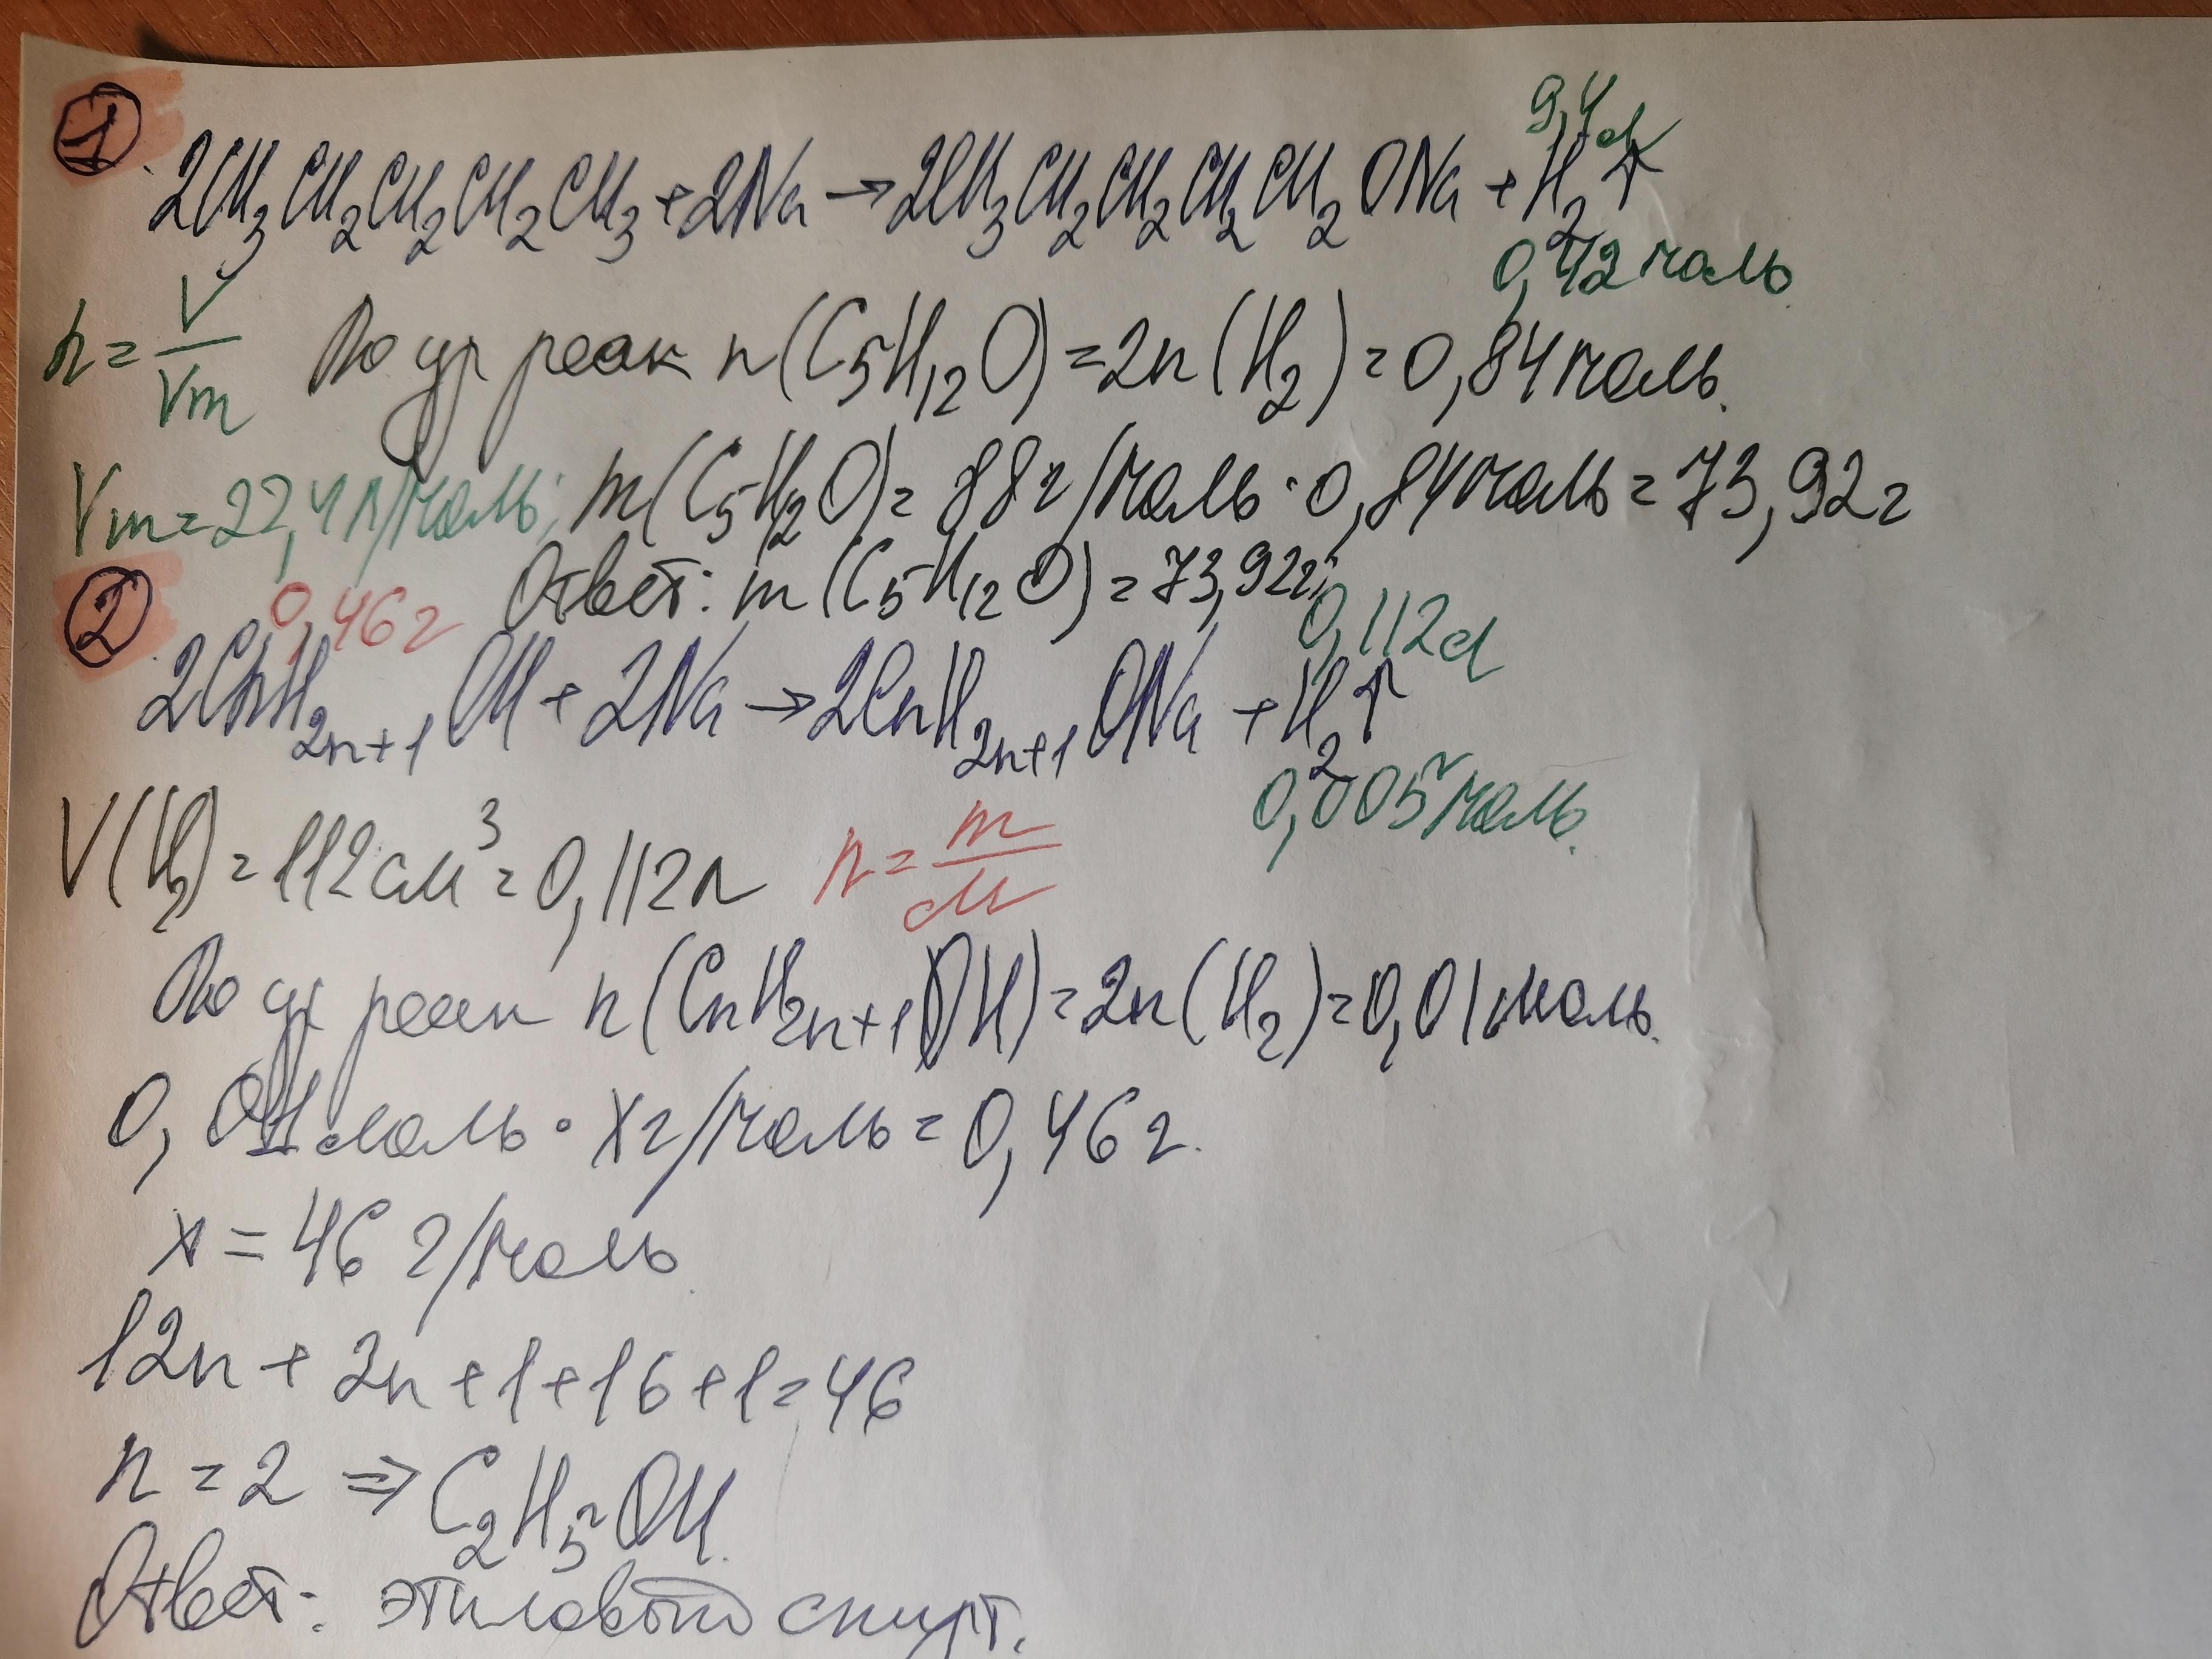 1
9,4 л
2CH3CH2CH2CH2CH3+2Na→2CH3CH2CH2CH2CH2ONa+H2↑
0,42 моль
n=V/Vm По ур реак n(C5H12O)=2n(H2)=0,84 моль.
Vm=22,4 л/моль; m(C5H12O)=88 г/моль·0,84 моль=73,92 г
Ответ: m(C5H12O)=73,92 г
2
0,46 г 0,112 л
2CnH2n+1OH+2Na→2CnH2n+1ONa+H2↑
0,005 моль.
V(H2)=112 см³=0,112 л n=m/M
По ур реак n(CnH2n+1OH)=2n(H2)=0,01 моль.
0,01 моль·x г/моль=0,46 г.
x=46 г/моль
12n+2n+1+16+1=46
n=2⇒C2H5OH.
Ответ: этиловый спирт.